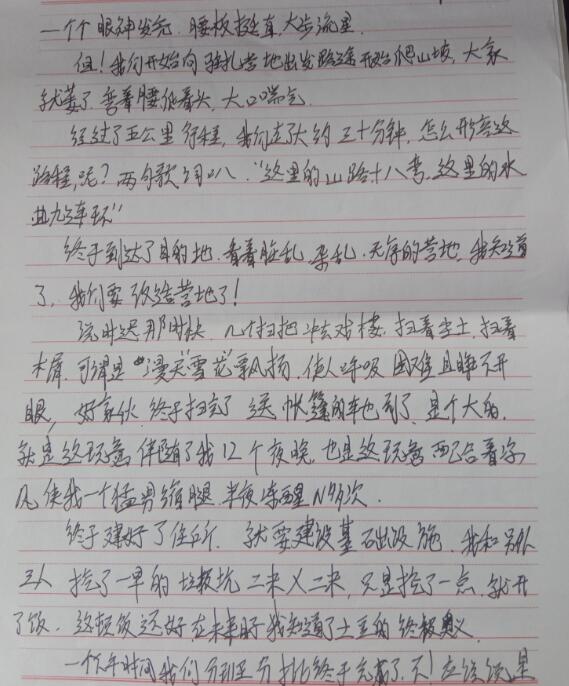 一个个眼神发亮.腰板挺直.大步流星.
但!我们开始向驻扎营地出发路途开始爬山坡,大家
就萎了.弯着腰低着头,大口喘气.
经过了五公里行程,我们走了大约三十分钟,怎么形容这
路程呢?两句歌词叭."这里的山路十八弯,这里的水
路九连环"
终于到达了目的地.看着脏乱.杂乱.无序的营地,我知道
了,我们要改造营地了!
说时迟那时快,几个扫把冲去戏楼,扫着尘土,扫着
木屑,可谓是"漫天"雪花飘扬,使人呼吸困难且睁不开
眼,好家伙,终于扫完了送帐篷的车也到了,是个大的,
就是这玩意伴随了我12个夜晚,也是这玩意配合着寒
风使我一个猛男缩腿,半夜冻醒N多次.
终于建好了住所,就要建设基础设施,我和另外
三人挖了一早的垃圾坑二米X二米,只是挖了一点,就开
了饭.这顿饭还好在未来时我知道了土豆的终极奥义.
一个下午时间我们分班